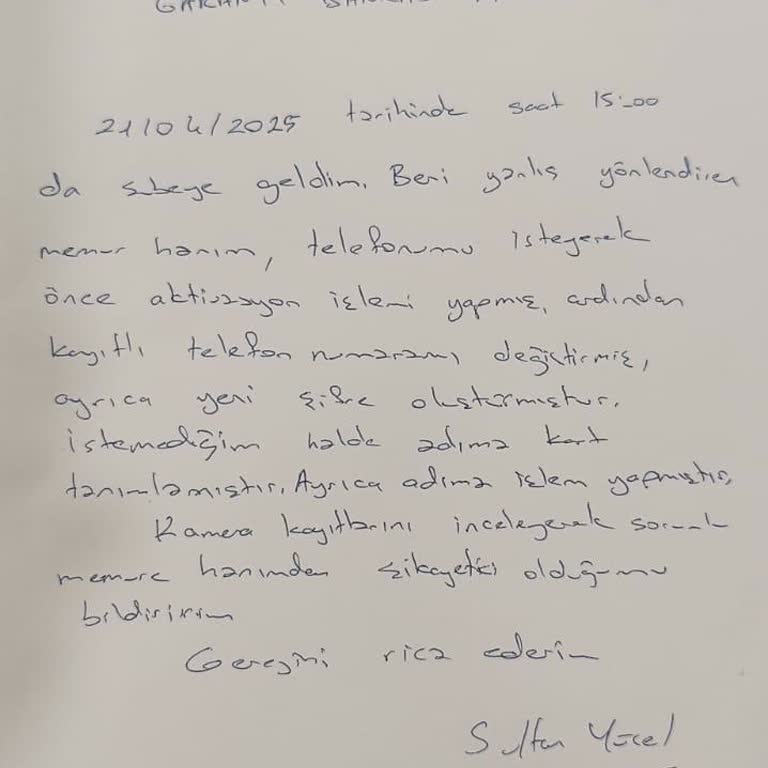 21/04/2025 tarihinde saat 15:00
da şubeye geldim. Beni yanlış yönlendiren
memur hanım, telefonumu isteyerek
önce aktivasyon işlemi yapmış, ardından
kayıtlı telefon numaramı değiştirmiş,
ayrıca yeni şifre oluşturmuştur.
İstemediğim halde adıma kart
tanımlamıştır. Ayrıca adıma işlem yapmıştır.
Kamera kayıtlarını inceleyerek
memure hanımdan şikayetçi olduğumu
bildiririm
Gereğini rica ederim
Sultan Yücel